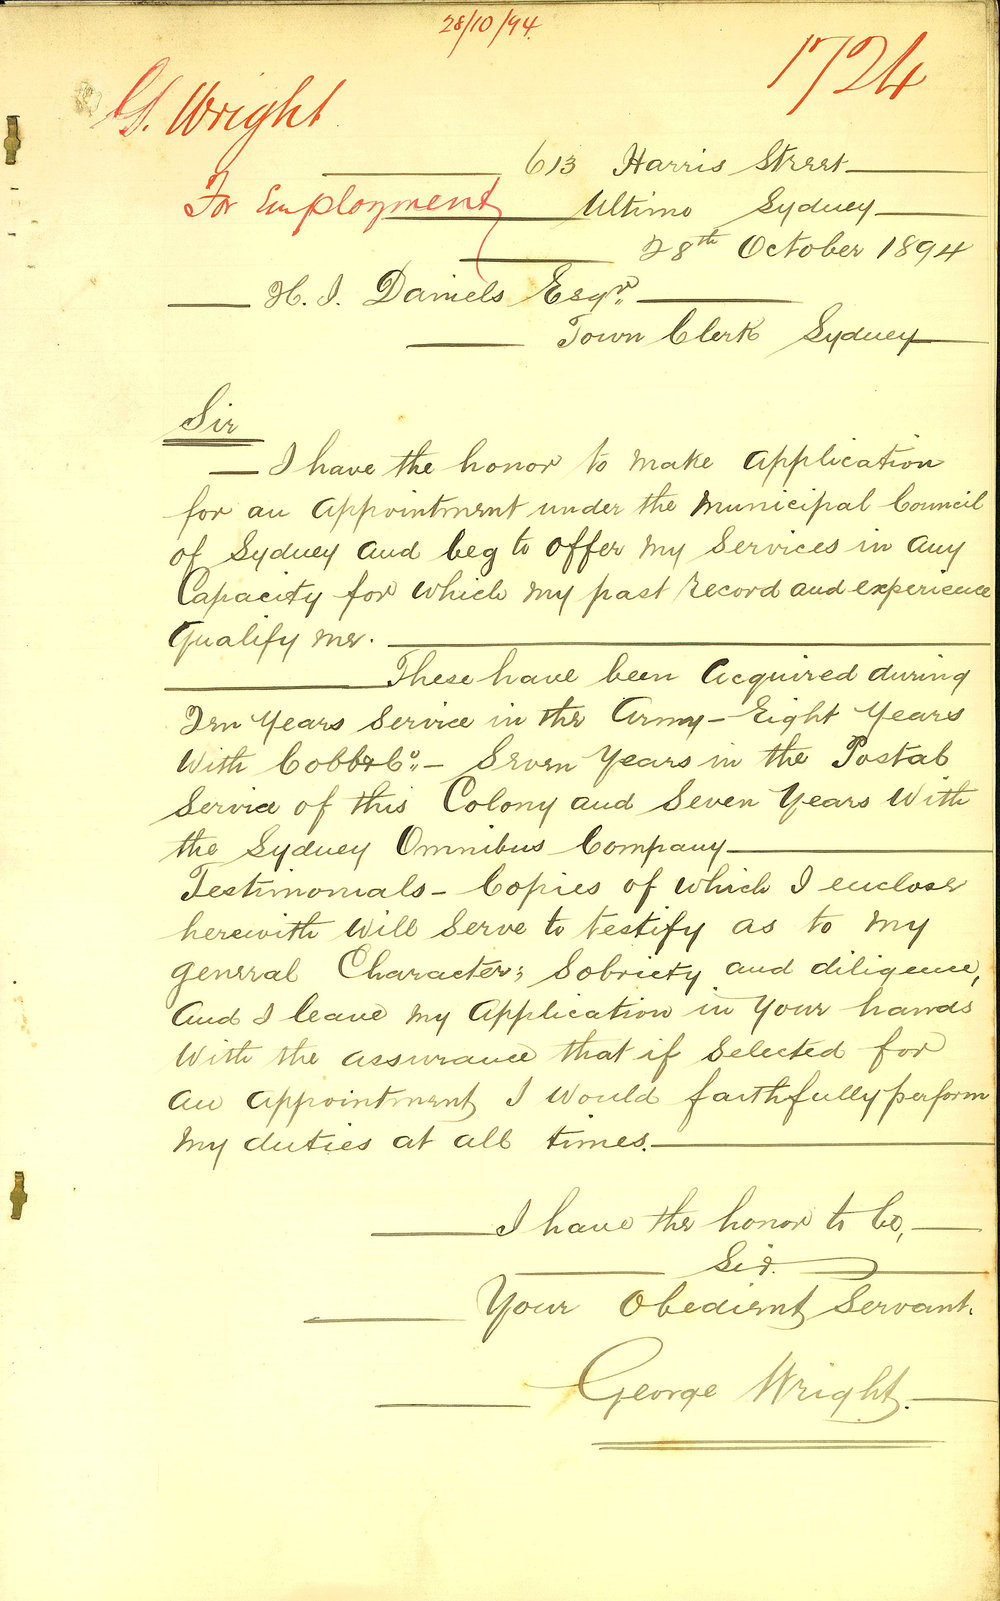 28/10/94.
1724
G. Wright
613 Harris Street
For Employment
Ultimo Sydney
28th October 1894
H. J. Daniels Esqr.
Town Clerk Sydney
Sir
I have the honor to make Application
for an Appointment under the Municipal Council
of Sydney and beg to offer my Services in any
Capacity for which my past record and experience
qualify me.
These have been Acquired during
Ten Years Service in the Army - Eight Years
With Cobb & Co. - Seven Years in the Postal
Service of this Colony and Seven Years With
the Sydney Omnibus Company
Testimonials - Copies of which I enclose
herewith Will Serve to testify as to my
general Character; Sobriety and diligence,
And I leave my Application in Your hands
With the assurance that if Selected for
an appointment I Would faithfully perform
my duties at all times.
I have the honor to be,
Sir.
Your Obedient Servant.
George Wright.